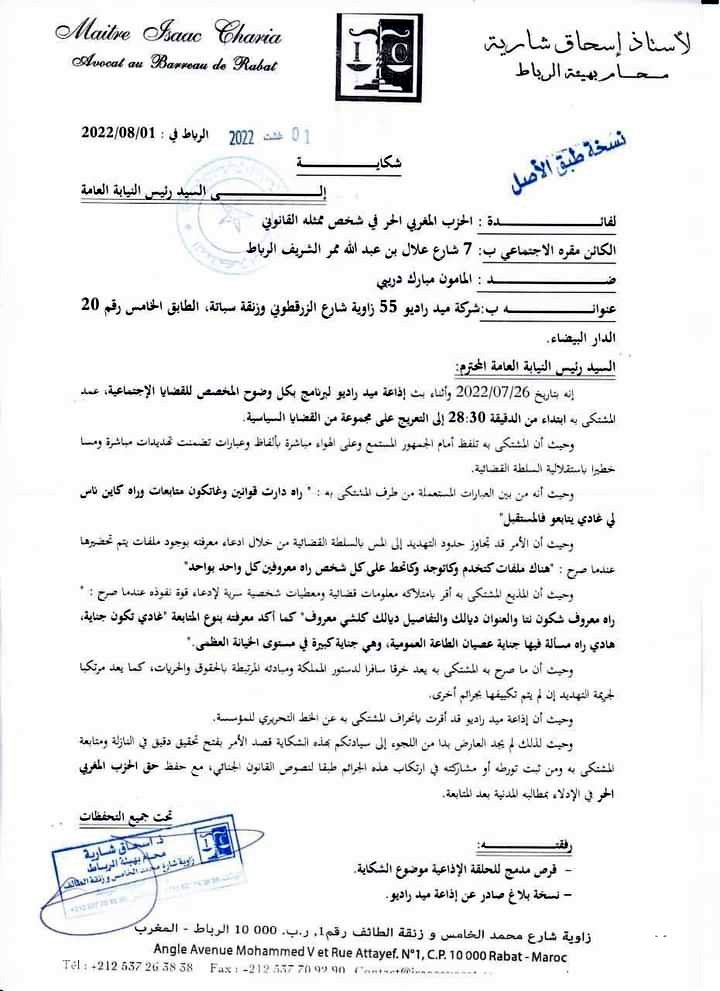 Maitre Isaac Charia
Avocat au Barreau de Rabat
I C
لأستاذ إسحاق شارية
محام بهيئة الرباط
الرباط في : 2022/08/01
01 غشت 2022
نسخة طبق الأصل
شكاية
إلى السيد رئيس النيابة العامة
لفائدة : الحزب المغربي الحر في شخص ممثله القانوني
الكائن مقره الاجتماعي ب: 7 شارع علال بن عبد الله ممر الشريف الرباط
ضد : المامون مبارك دريبي
عنوانه ب:شركة ميد راديو 55 زاوية شارع الزرقطوني وزنقة سباتة، الطابق الخامس رقم 20
الدار البيضاء.
السيد رئيس النيابة العامة المحترم:
إنه بتاريخ 2022/07/26 وأثناء بث إذاعة ميد راديو لبرنامج بكل وضوح المخصص للقضايا الإجتماعية، عمد
المشتكى به ابتداء من الدقيقة 28:30 إلى التعريج على مجموعة من القضايا السياسية.
وحيث أن المشتكى به تلفظ أمام الجمهور المستمع وعلى الهواء مباشرة بألفاظ وعبارات تضمنت تهديدات مباشرة ومسا
خطيرا باستقلالية السلطة القضائية.
وحيث أنه من بين العبارات المستعملة من طرف المشتكى به : " راه دارت قوانين وغاتكون متابعات وراه كاين ناس
لي غادي يتابعو فالمستقبل"
وحيث أن الأمر قد تجاوز حدود التهديد إلى المس بالسلطة القضائية من خلال ادعاء معرفته بوجود ملفات يتم تحضيرها
عندما صرح : "هناك ملفات كتخدم وكاتوجد وكاتحط على كل شخص راه معروفين كل واحد بواحد"
وحيث أن المذيع المشتكى به أقر بامتلاكه معلومات قضائية ومعطيات شخصية سرية لإدعاء قوة نفوذه عندما صرح : "
راه معروف شكون نتا والعنوان ديالك والتفاصيل ديالك كلشي معروف" كما أكد معرفته بنوع المتابعة "غادي تكون جناية،
هادي راه مسألة فيها جناية عصيان الطاعة العمومية، وهي جناية كبيرة في مستوى الخيانة العظمى."
وحيث أن ما صرح به المشتكى به يعد خرقا سافرا لدستور المملكة ومبادئه المرتبطة بالحقوق والحريات، كما يعد مرتكبا
لجريمة التهديد إن لم يتم تكييفها بجرائم أخرى.
وحيث أن إذاعة ميد راديو قد أقرت بانحراف المشتكى به عن الخط التحريري للمؤسسة.
وحيث لذلك لم يجد العارض بدا من اللجوء إلى سيادتكم بهذه الشكاية قصد الأمر بفتح تحقيق دقيق في النازلة ومتابعة
المشتكى به ومن ثبت تورطه أو مشاركته في ارتكاب هذه الجرائم طبقا لنصوص القانون الجنائي، مع حفظ حق الحزب المغربي
الحر في الإدلاء بمطالبه المدنية بعد المتابعة.
تحت جميع التحفظات
ذ. إسحاق شارية
محام بهيئة الرباط
زاوية شارع محمد الخامس و زنقة الطائف
رفقته:
- قرص مدمج للحلقة الإذاعية موضوع الشكاية.
- نسخة بلاغ صادر عن إذاعة ميد راديو.
زاوية شارع محمد الخامس و زنقة الطائف رقم1, ر.ب. 000 10 الرباط - المغرب
Angle Avenue Mohammed V et Rue Attayef. N°1, C.P. 10 000 Rabat - Maroc
Tél : +212 537 26 38 38 Fax : +212 537 70 92 90